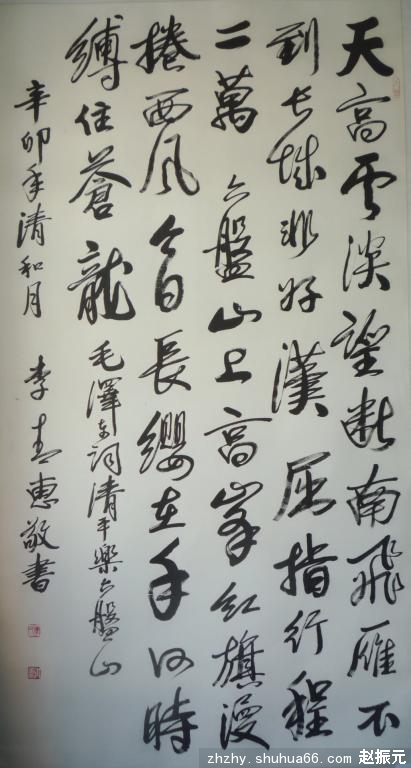 天高雲淡望断南飛雁不
到長城非好漢屈指行程
二萬六盤山上高峯紅旗漫
捲西風今日長纓在手何時
縛住蒼龍毛澤東詞清平樂六盤山
辛卯年清和月李惠敬書
zhzhy.shuhua66.com 赵振元